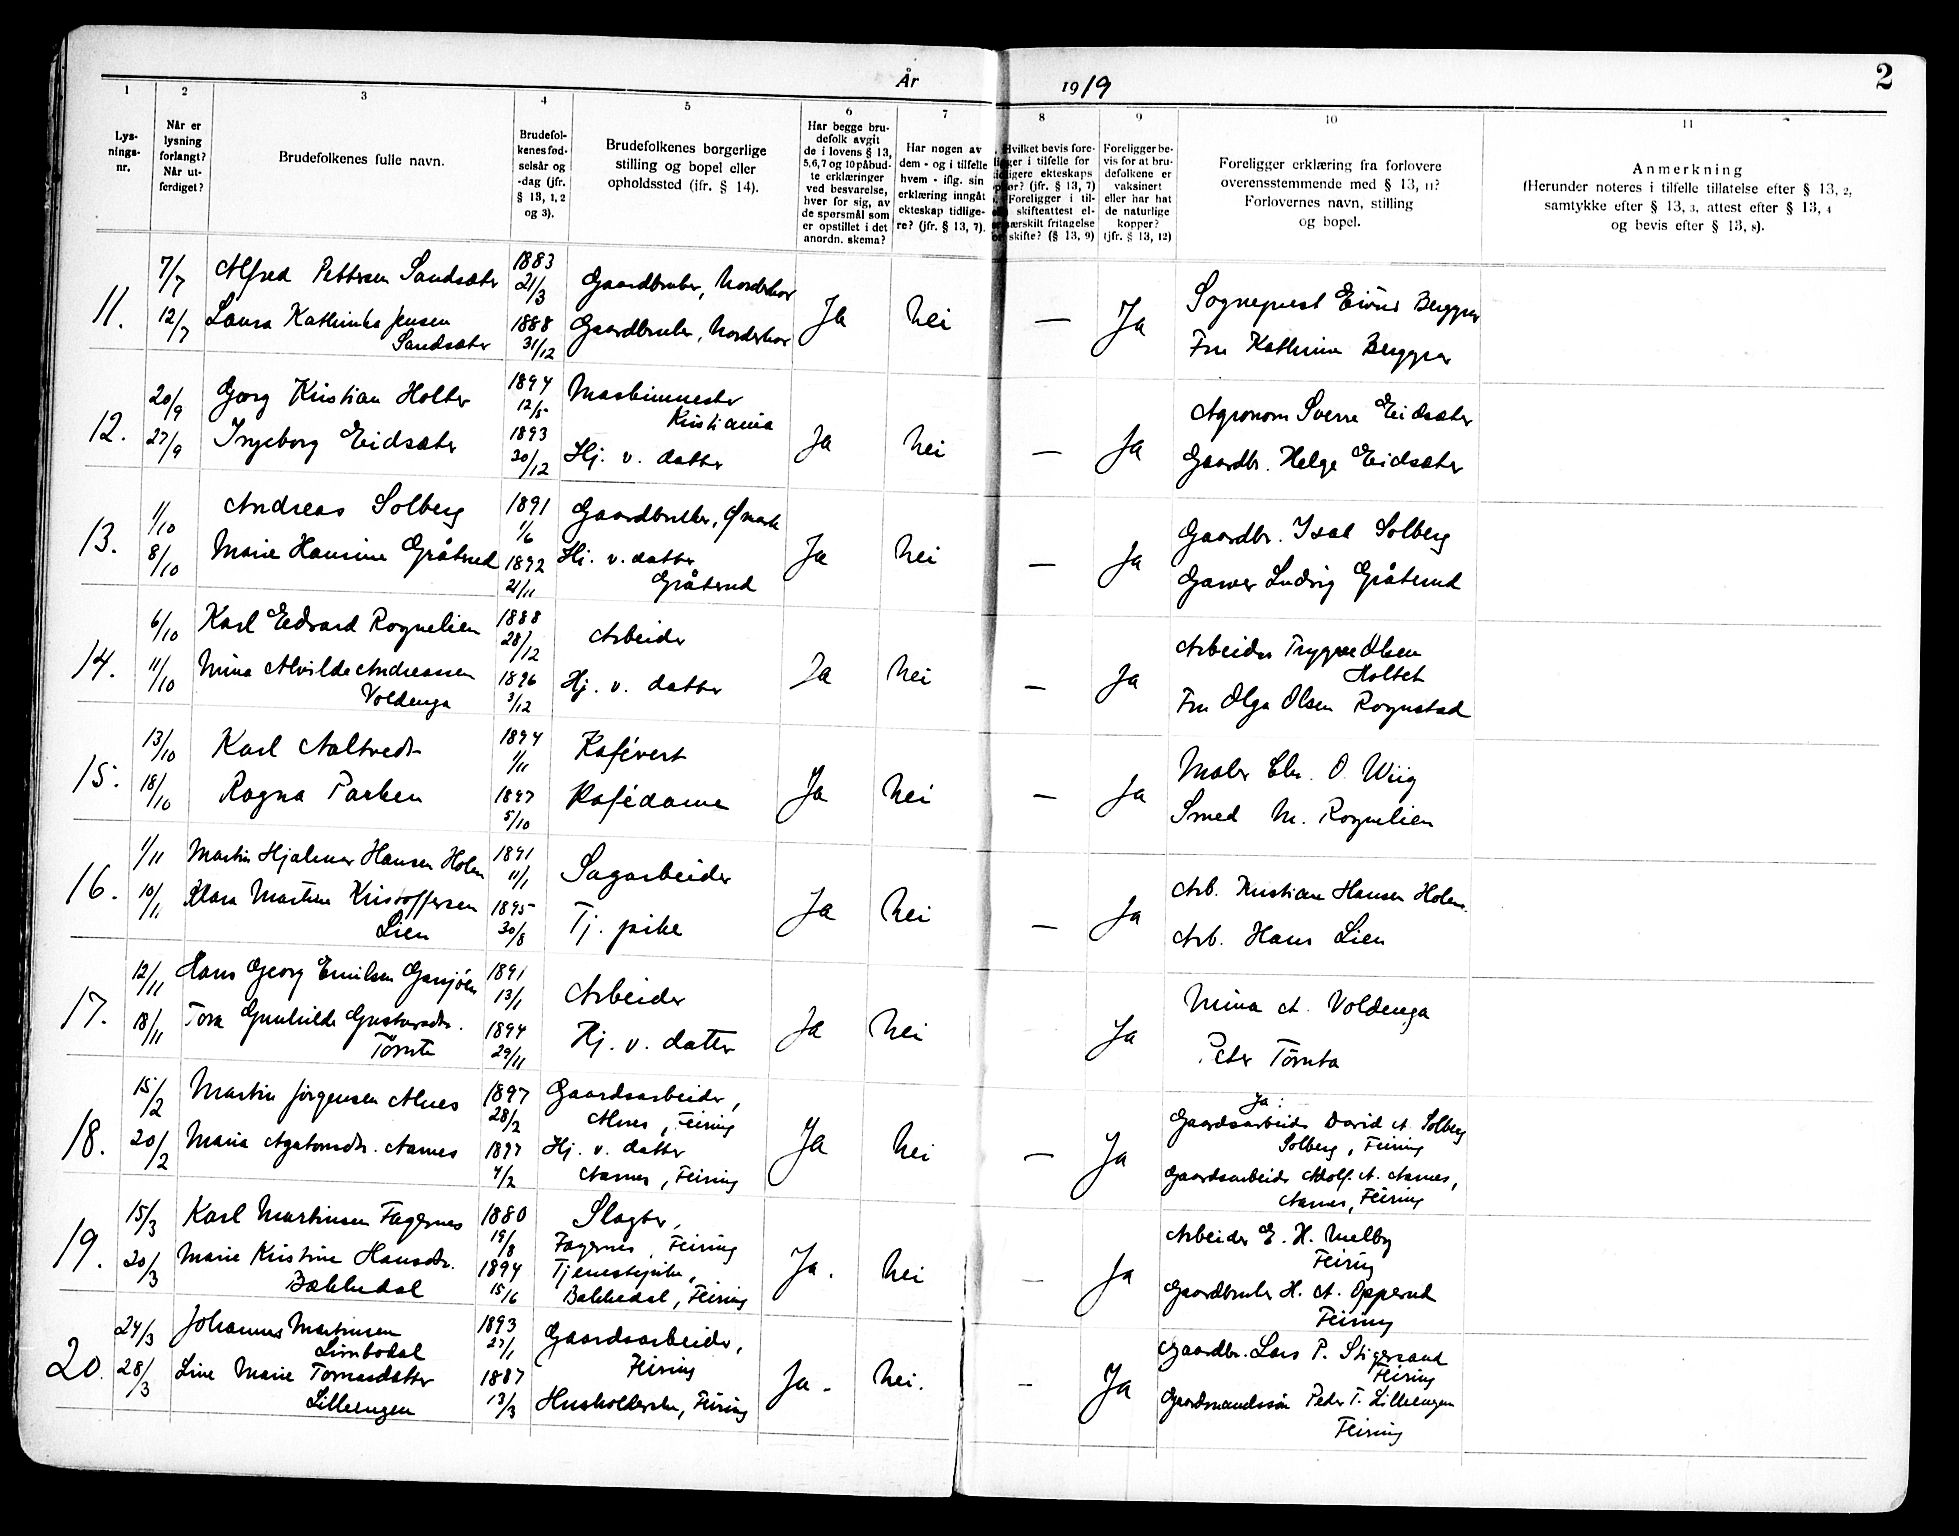 År 1919
2
1 2 3 4 5 6 7 8 9 10 11
Lysnings-nr.
Når er lysning forlangt? Når utferdiget?
Brudefolkenes fulle navn.
Brudefolkenes fødselsår og -dag (jfr. § 13, 1, 2 og 3).
Brudefolkenes borgerlige stilling og bopel eller opholdssted (ifr. § 14).
Har begge brudefolk avgit de i lovens § 13, 5, 6, 7 og 10 påbudte erklæringer ved besvarelse, hver for sig, av de spørsmål som er opstillet i det anordn. skema?
Har nogen av dem - og i tilfelle hvem - iflg. sin erklæring inngåt ekteskap tidligere? (jfr. § 13, 7).
Hvilket bevis foreligger i tilfelle for tidligere ekteskaps ophør? (jfr. § 13, 7) Foreligger i til- skifteattest el- særskilt fritagelse for skifte? (§ 13, 9)
Foreligger bevis for at brudefolkene er vaksinert eller har hat de naturlige kopper? (jfr. § 13, 12)
Foreligger erklæring fra forlovere overensstemmende med § 13, 11? Forlovernes navn, stilling og bopel.
Anmerkning (Herunder noteres i tilfelle tillatelse efter § 13, 2, samtykke efter § 13, 3, attest efter § 13, 4 og bevis efter § 13, 8).
11. 7/7 Alfred Pettersen Sandsæter 1883 21/3 Gaardbruker, Norderhov Ja Nei — Ja Sogneprest Eivind Berggrav
12/7 Laura Kathinka Jensen Sandsæter 1888 31/12 Gaardbruker, Norderhov Fru Kathrine Berggrav
12. 20/9 Georg Kristian Holter 1894 12/5 Maskinmester Kristiania Ja Nei — Ja Agronom Sverre Eidsæter
27/9 Ingeborg Eidsæter 1893 30/12 Hj. v. datter Gaardbr. Helge Eidsæter
13. 1/10 Andreas Solberg 1891 1/6 Gaardbruker, Ømark Ja Nei — Ja Gaardbr. Isak Solberg
8/10 Marie Hansine Gråterud 1892 21/11 Hj. v. datter Gråterud Garver Ludvig Gråterud
14. 6/10 Karl Edvard Rognelien 1888 28/12 Arbeider Ja Nei — Ja Arbeider Trygve Olsen Holtet
11/10 Mina Alvilde Andreassen Voldenga 1896 3/12 Hj. v. datter Fru Olga Olsen Rognstad
15. 13/10 Karl Aaltvedt 1894 1/11 Kafévert Ja Nei — Ja Maler Chr. O. Wiig
18/10 Ragna Parken 1897 5/10 Kafédame Smed M. Rognelien
16. 1/11 Martin Hjalmar Hansen Holm 1891 11/1 Sagarbeider Ja Nei — Ja Arb. Kristian Hansen Holm.
10/11 Klara Martine Kristoffersen Lien 1895 30/8 Tj. pike Arb. Hans Lien
17. 12/11 Hans Georg Emilsen Gansjøen 1891 13/1 Arbeider Ja Nei Ja Mina A. Voldenga
18/11 Tora Gunhilde Gustavsdtr. Tømte 1894 29/11 Hj. v. datter Peter Tömta
18. 15/2 Martin Jörgensen Alnes 1897 28/2 Gaardsarbeider, Alnes, Feiring Ja Nei — Ja Ja: Gaardsarbeider David A. Solberg Solberg, Feiring
20/2 Maria Agatonsdtr. Aarnes 1897 4/2 Hj. v. datter Aarnes, Feiring Gaardsarbeider Adolf. A. Aarnes, Aarnes, Feiring
19. 15/3 Karl Martinsen Fagernes 1880 19/8 Slagter, Fagernes, Feiring Ja. Nei — Ja Arbeider E. H. Melby Feiring
20/3 Marie Kristine Hansdtr. Bækkedal 1894 15/6 Tjenestepike, Bakkedal, Feiring Gaardbruker H. A. Opperud Feiring
20. 24/3 Johannes Martinsen Limbodal 1893 27/1 Gaardsarbeider, Feiring Ja - Nei. — Ja Gaardbr. Lars P. Stigersand Feiring
28/3 Line Marie Tomasdatter Lilleengen 1887 13/3 Husholderske, Feiring Gaardmandssön Peder T. Lilleengen Feiring